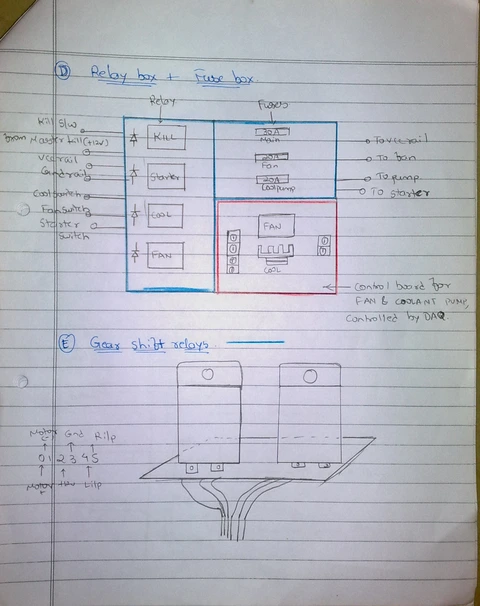 D Relay box + Fuse box
Relay
Fuses
Kill S/w
from Master kill (+12V)
Vcc rail
Gnd rail
Cool switch
Fan switch
Starter
switch
KILL
Starter
COOL
FAN
30A
Main
20A
Fan
20A
Coolpump
To vcc rail
To fan
To pump
To starter
FAN
COOL
Control board for
FAN & COOLANT PUMP,
Controlled by DAQ.
E Gear shift relays
Motor Gnd R i/p
0 1 2 3 4 5
Motor L i/p